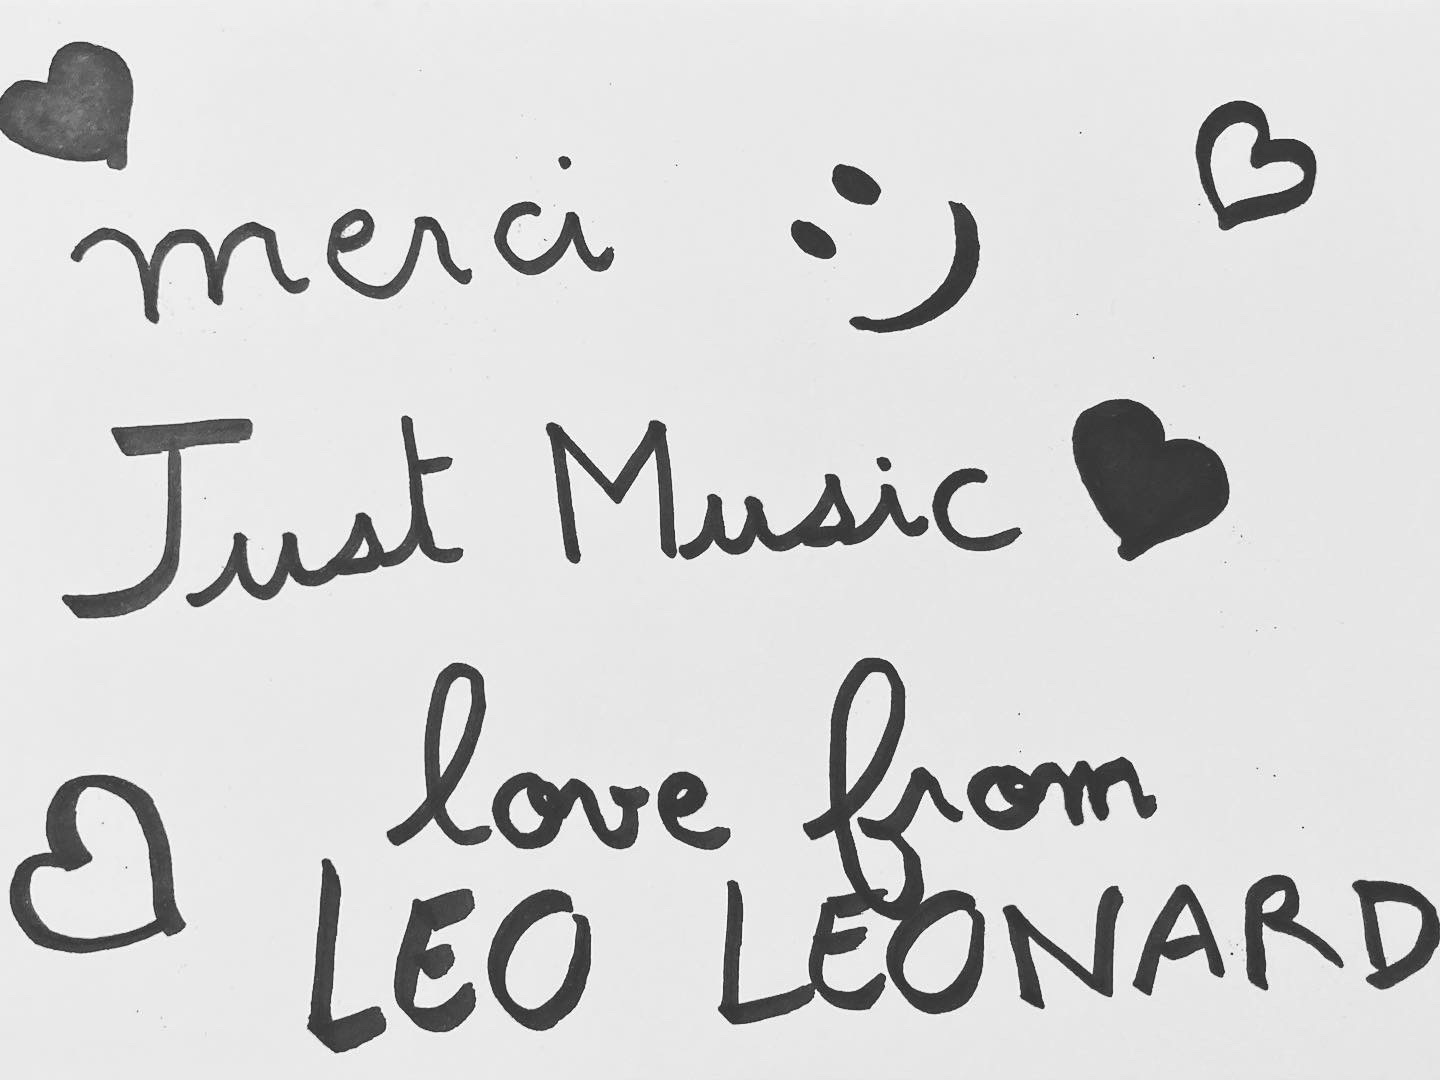 merci :)
Just Music
love from
LEO LEONARD